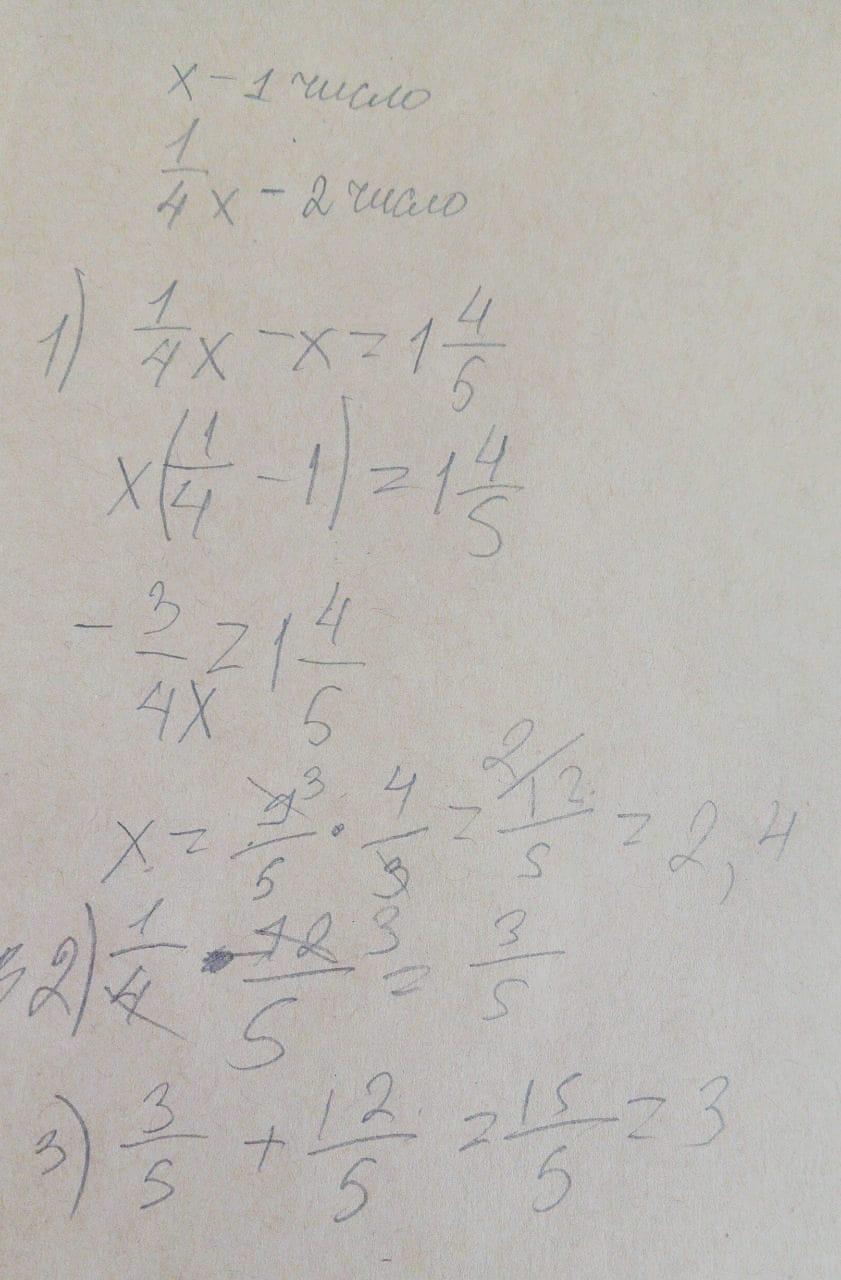 x - 1 число
1/4 x - 2 число
1) 1/4 x - x = 1 4/5
x(1/4 - 1) = 1 4/5
- 3/4x = 1 4/5
x = 9 3/5 · 4/3 = 2/12/5 = 2,4
2) 1/4 · 12 3/5 = 3/5
3) 3/5 + 12/5 = 15/5 = 3